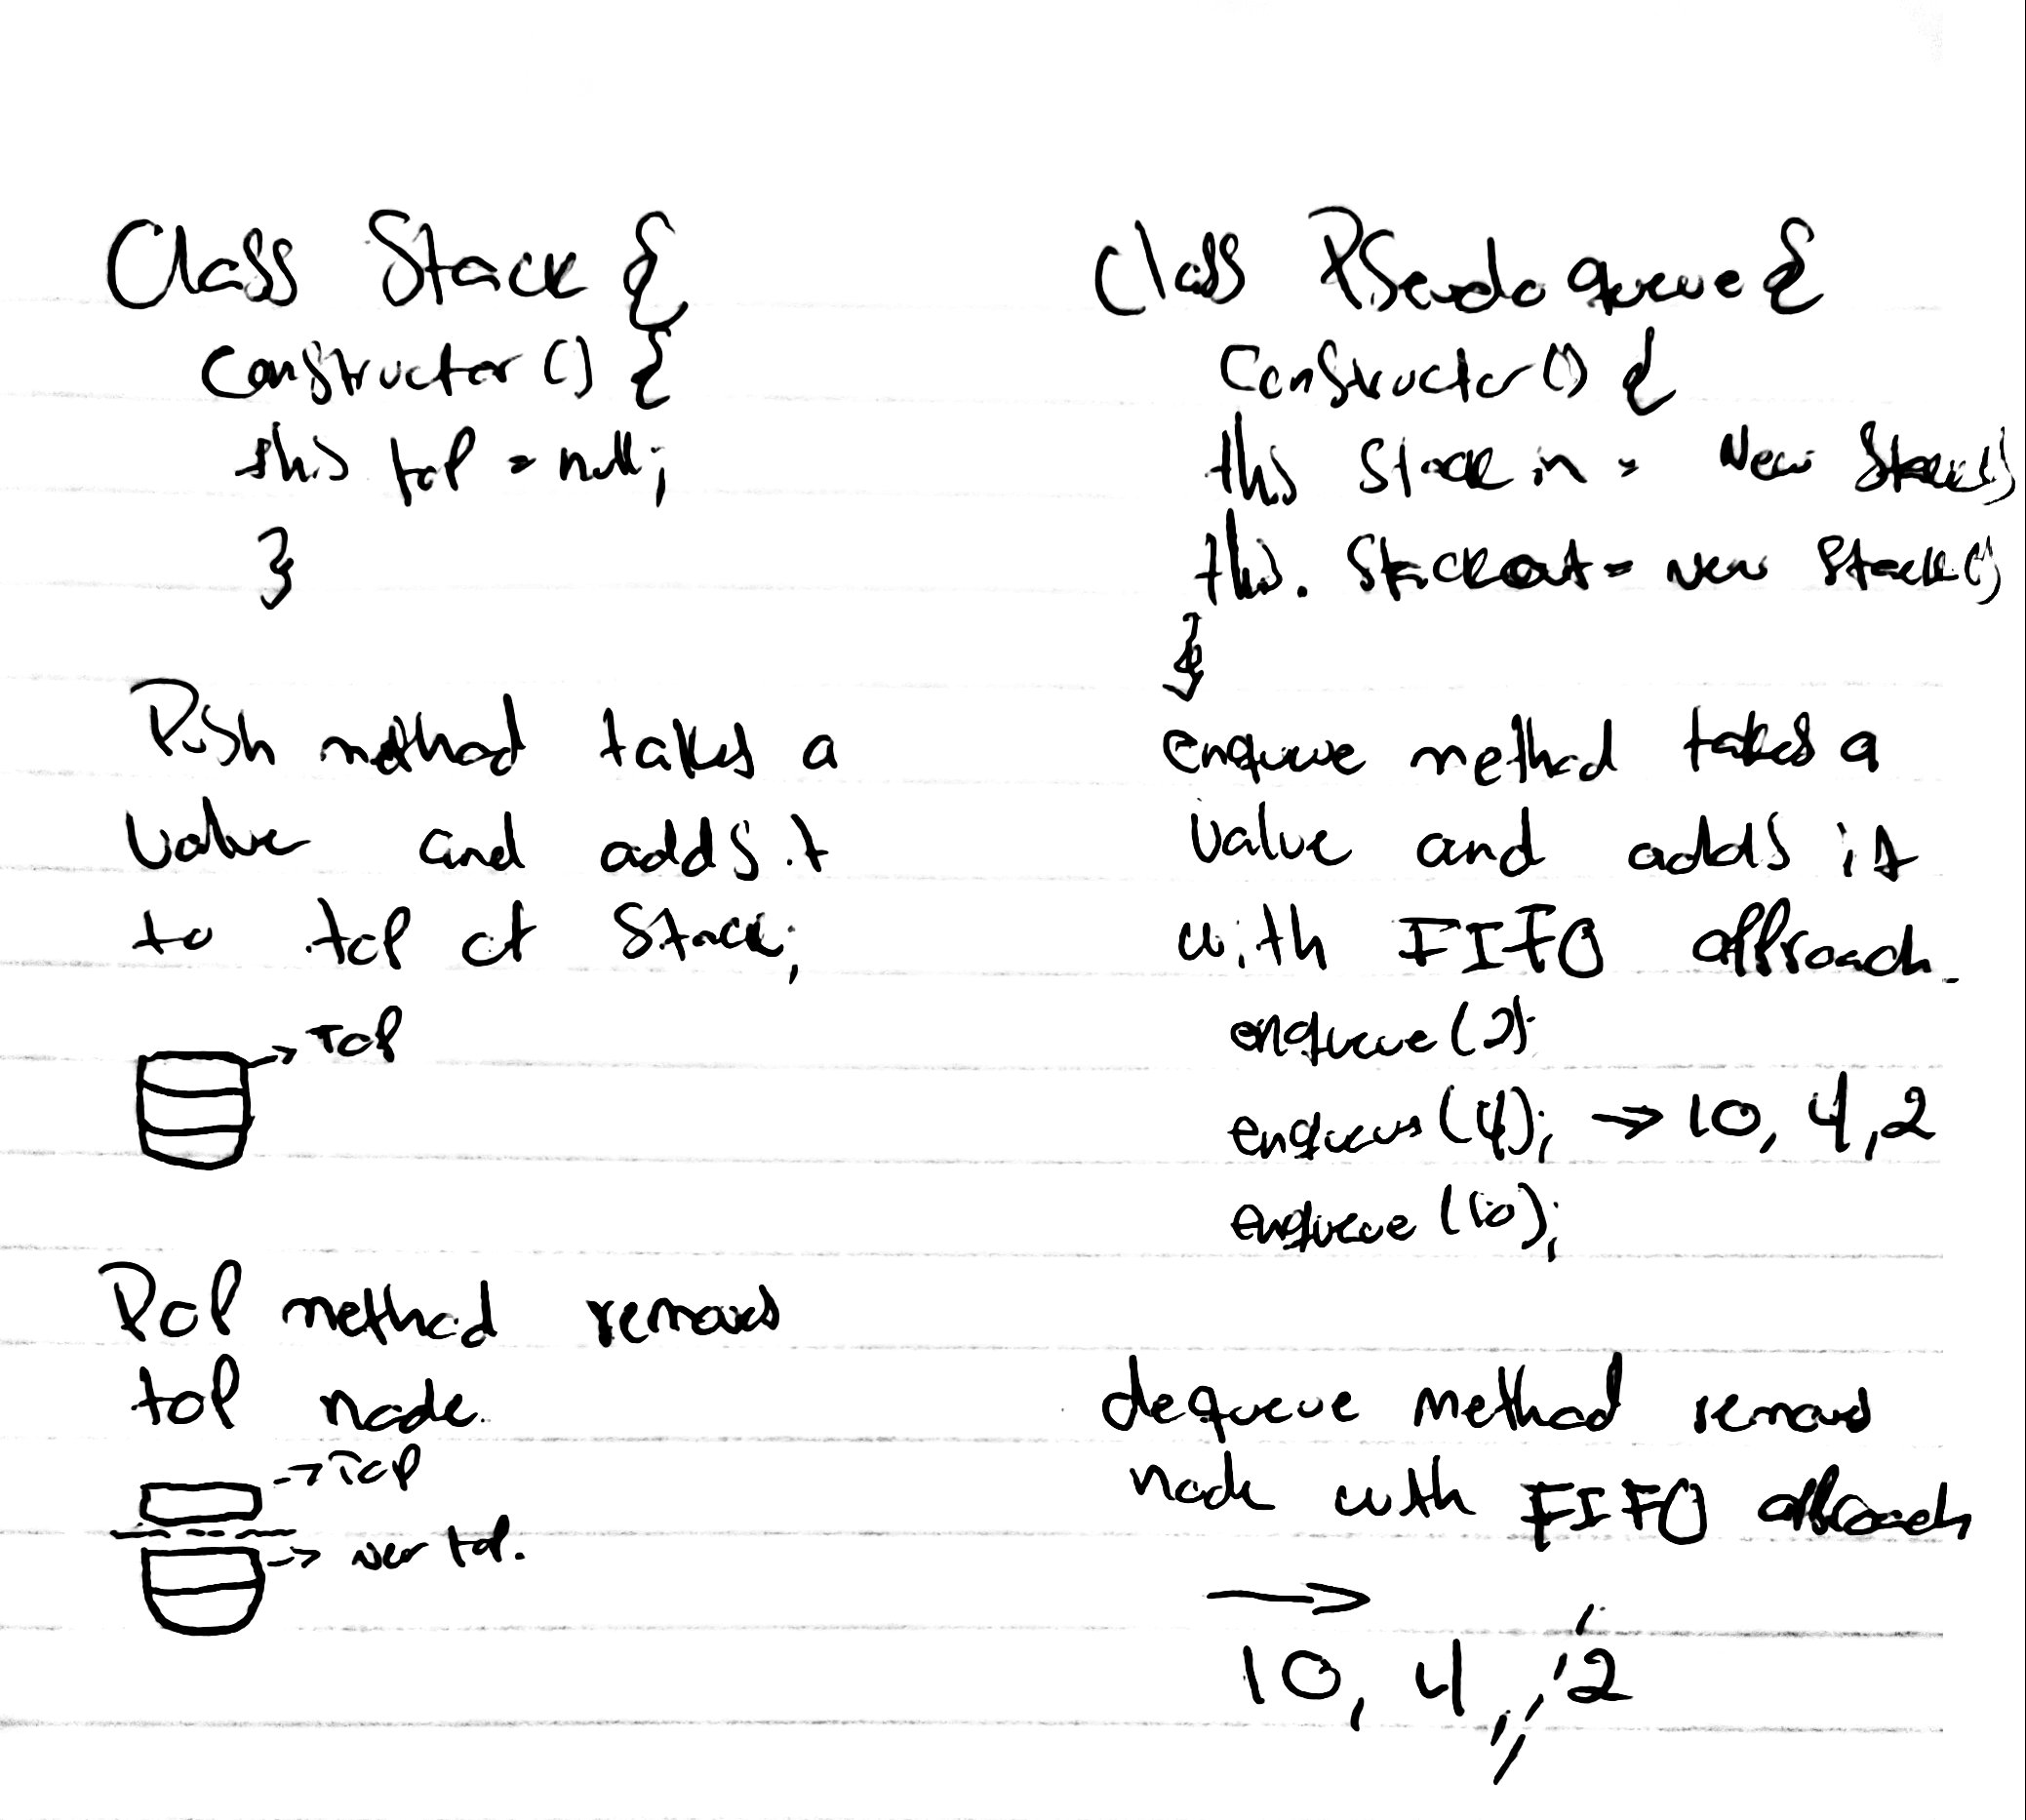 Class Stack {
constructor () {
this top = null;
}
Push method takes a
value and adds it
to top of Stack;
→ Top
Pop method removes
top node.
→ Top
→ new top.
Class Pseudo queue {
Constructor () {
this Stack in = New Stack()
this. Stack out = New Stack()
}
enqueue method takes a
value and adds it
with FIFO approach.
enqueue (2);
enqueue (4); → 10, 4, 2
enqueue (10);
dequeue method removes
node with FIFO approach
→
10, 4, 2